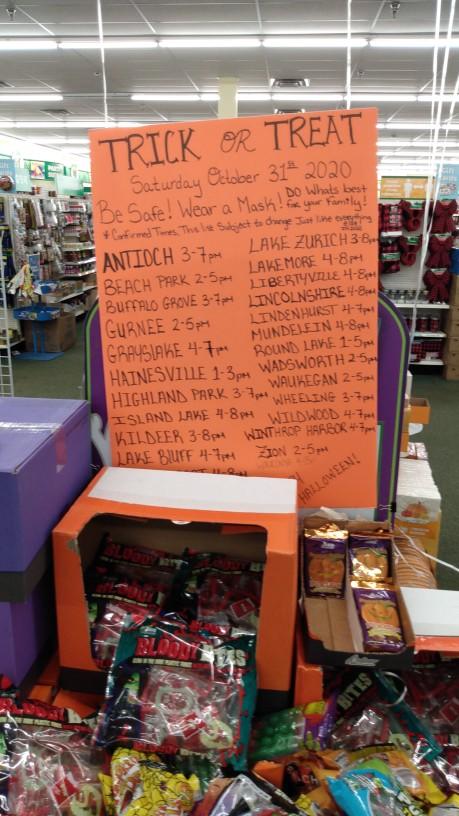 TRICK OR TREAT
Saturday October 31st 2020
Be Safe! Wear a Mask!
DO Whats best
for your family!
* Confirmed Times, This list Subject to change Just like everything
ANTIOCH 3-7pm
BEACH PARK 2-5pm
BUFFALO GROVE 3-7pm
GURNEE 2-5pm
GRAYSLAKE 4-7pm
HAINESVILLE 1-3pm
HIGHLAND PARK 3-7pm
ISLAND LAKE 4-8pm
KILDEER 3-8pm
LAKE BLUFF 4-7pm
LAKE ZURICH 3-8pm
LAKEMORE 4-8pm
LIBERTYVILLE 4-8pm
LINCOLNSHIRE 4-8pm
LINDENHURST 4-7pm
MUNDELEIN 4-8pm
ROUND LAKE 1-5pm
WADSWORTH 2-5pm
WAUKEGAN 2-5pm
WHEELING 3-7pm
WILDWOOD 4-7pm
WINTHROP HARBOR 4-7pm
ZION 2-5pm
HALLOWEEN!
BLOODY
BLOODY BITES
BITES